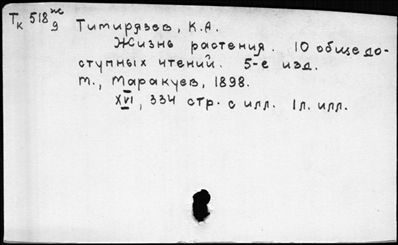 Тк 518ж
9
Тимирязев, К.А.
Жизнь растения. 10 общедо-
ступных чтений. 5-е изд.
М., Маракуев, 1898.
XVI, 334 стр. с илл. 1л. илл.